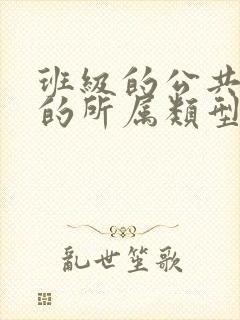 班級的公共
的所属類型
亂世笙歌